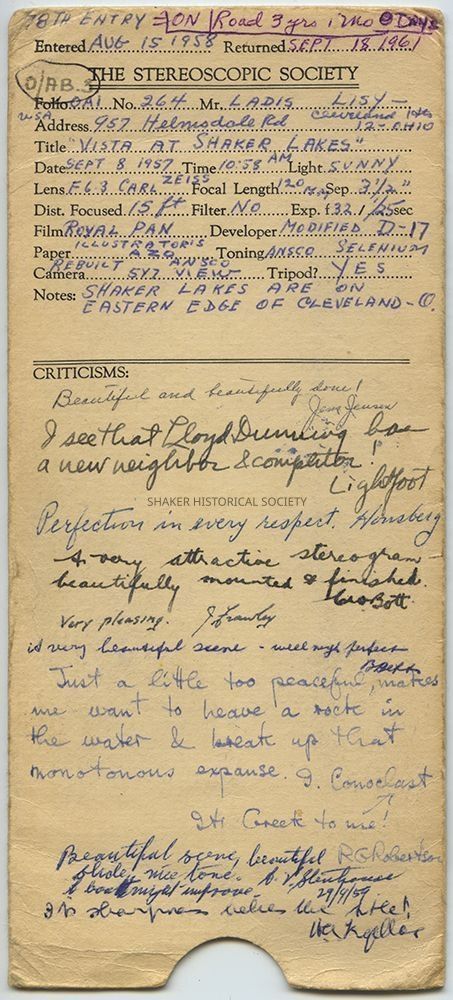 78TH ENTRY ON Road 3 yrs 1 mo 0 DAYS
Entered AUG 15 1958 Returned SEPT 18 1961
O/AB.3 THE STEREOSCOPIC SOCIETY
Folio OA1 No. 264 Mr. LADIS LISY -
USA Address 957 Helmsdale Rd Cleveland Hts
12-OHIO
Title "VISTA AT SHAKER LAKES"
Date SEPT 8 1957 Time 10:58 AM Light SUNNY
Lens F6.3 CARL ZEISS Focal Length 120 MM Sep 3 1/2"
Dist. Focused 15 ft Filter NO Exp. f32 1/25 sec
Film ROYAL PAN Developer MODIFIED D-17
Paper ILLUSTRATOR'S AZO Toning ANSCO SELENIUM
Camera REBUILT ANSCO 5X7 VIEW Tripod? YES
Notes: SHAKER LAKES ARE ON
EASTERN EDGE OF CLEVELAND - O.
CRITICISMS:
Beautiful and beautifully done!
Jens Jensen
I see that Lloyd Dunning has
a new neighbor & competitor!
Lightfoot
SHAKER HISTORICAL SOCIETY
Perfection in every respect. Honsberg
A very attractive stereogram
beautifully mounted & finished.
Geo Bott
Very pleasing. J Frawley
A very beautiful scene - well nigh perfect
Just a little too peaceful, makes
me want to heave a rock in
the water & break up that
monotonous expanse. I. Conoclast
It's Greek to me!
R G Robertson
Beautiful scene, beautiful
slides, nice tone.
A boat might improve. 29/9/59
Its sharpness helps the